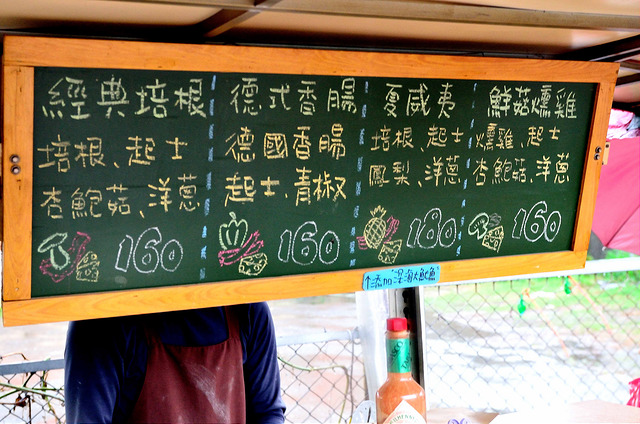 經典培根
培根、起士
杏鮑菇、洋蔥
160
德式香腸
德國香腸
起士、青椒
160
夏威夷
培根、起士
鳳梨、洋蔥
180
鮮菇燻雞
燻雞、起士
杏鮑菇、洋蔥
160